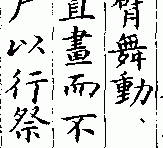 臂舞動、
直畫而不
以行祭